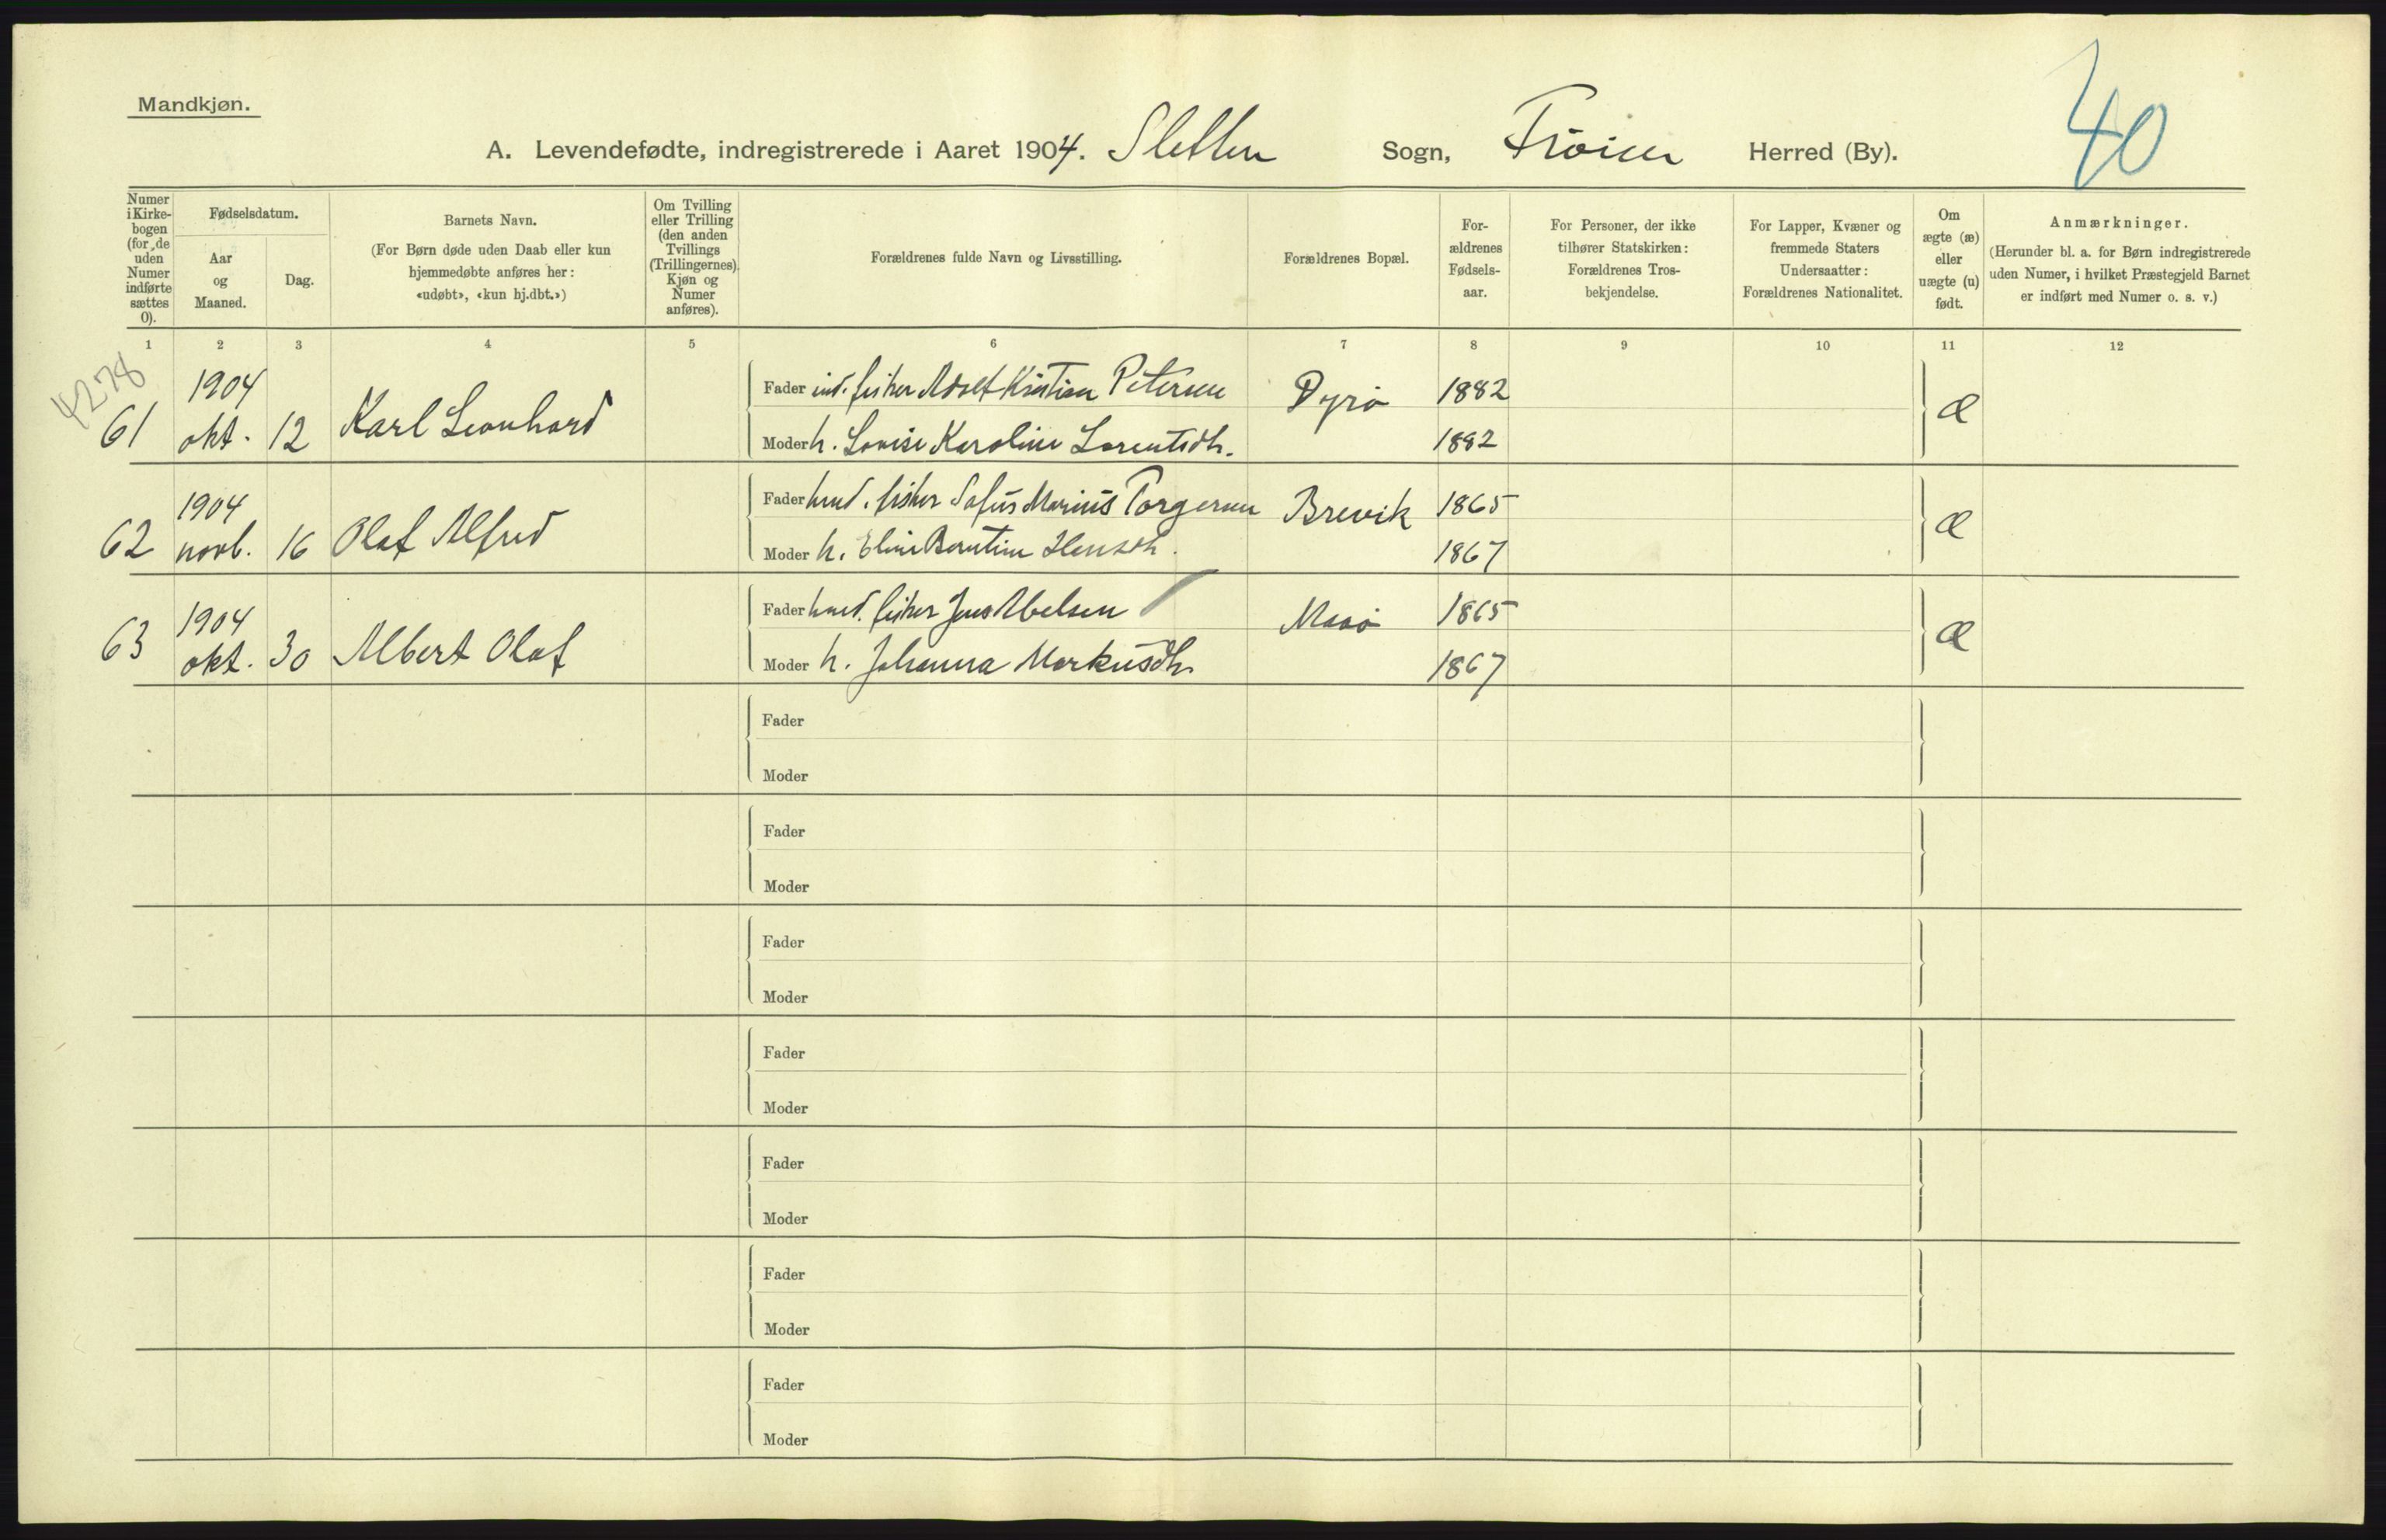 Mandkjøn.
40
A. Levendefødte, indregistrerede i Aaret 1904. Sletten Sogn, Frøien Herred (By).
Numer i Kirkebogen (for de uden Numer indførte sættes 0).
Fødselsdatum.
Aar og Maaned.
Dag.
Barnets Navn.
(For Børn døde uden Daab eller kun hjemmedøbte anføres her: «udøbt», «kun hj.dbt.»)
Om Tvilling eller Trilling (den anden Tvillings (Trillingernes) Kjøn og Numer anføres).
Forældrenes fulde Navn og Livsstilling.
Forældrenes Bopæl.
For-ældrenes Fødsels-aar.
For Personer, der ikke tilhører Statskirken: Forældrenes Tros-bekjendelse.
For Lapper, Kvæner og fremmede Staters Undersaatter: Forældrenes Nationalitet.
Om ægte (æ) eller uægte (u) født.
Anmærkninger.
(Herunder bl. a. for Børn indregistrerede uden Numer, i hvilket Præstegjeld Barnet er indført med Numer o. s. v.)
1 2 3 4 5 6 7 8 9 10 11 12
4278
61 1904 okt. 12 Karl Leonhard
Fader ind. fisker Adolf Kristian Petersen Dyrø 1882 æ
Moder h. Lovise Karoline Lorentsdtr. 1882
62 1904 novb. 16 Olaf Alfred
Fader husd. fisker Sofus Marius Torgersen Brevik 1865 æ
Moder h. Eline Berntine Hansdtr. 1867
63 1904 okt. 30 Albert Olaf
Fader husd. fisker Jens Abelsen Maaø 1865 æ
Moder h. Johanna Markusdtr 1867
Fader
Moder
Fader
Moder
Fader
Moder
Fader
Moder
Fader
Moder
Fader
Moder
Fader
Moder